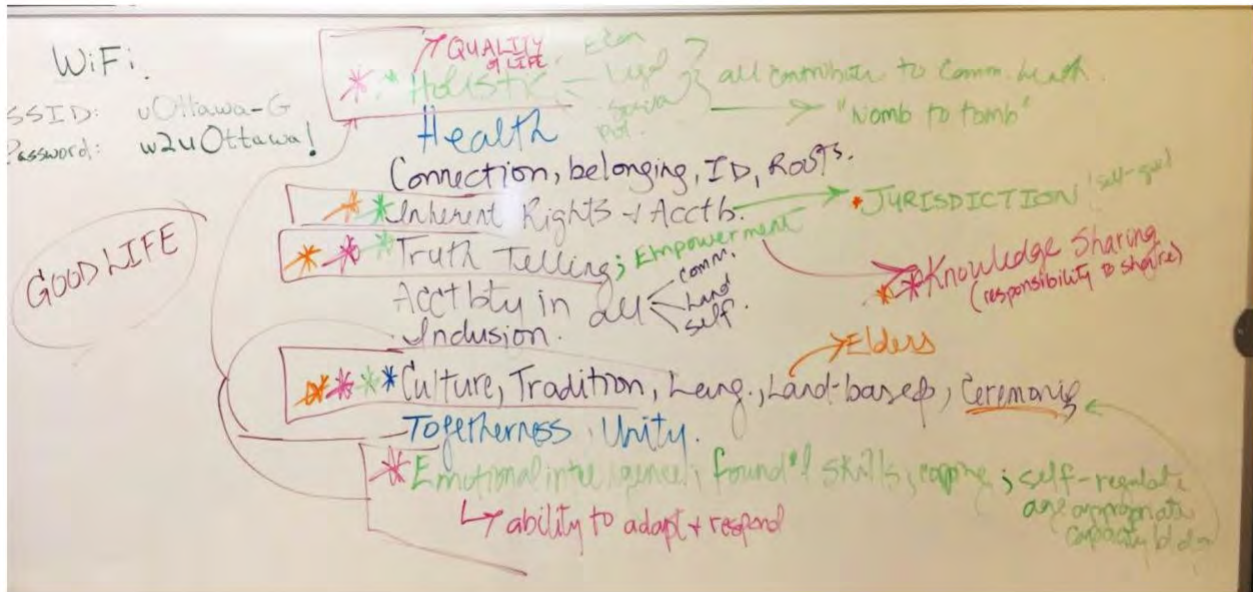 WiFi.
SSID: uOttawa-G
Password: w2uOttawa!
GOOD LIFE
QUALITY
of LIFE
Holistic
Econ
Legal
Social
Pol.
all contribute to Comm. health.
"Womb to tomb"
Health
Connection, belonging, ID, Roots.
Inherent Rights + Acctb.
JURISDICTION
Truth Telling; Empowerment
Knowledge Sharing
(responsibility to share)
Acctbty in all
comm.
Land
self
Inclusion.
Elders
Culture, Tradition, Lang., Land-based, Ceremonies
Togetherness, Unity.
Emotional intelligence; found'l skills, coping; self-regulate
age appropriate
capacity bldg
ability to adapt + respond